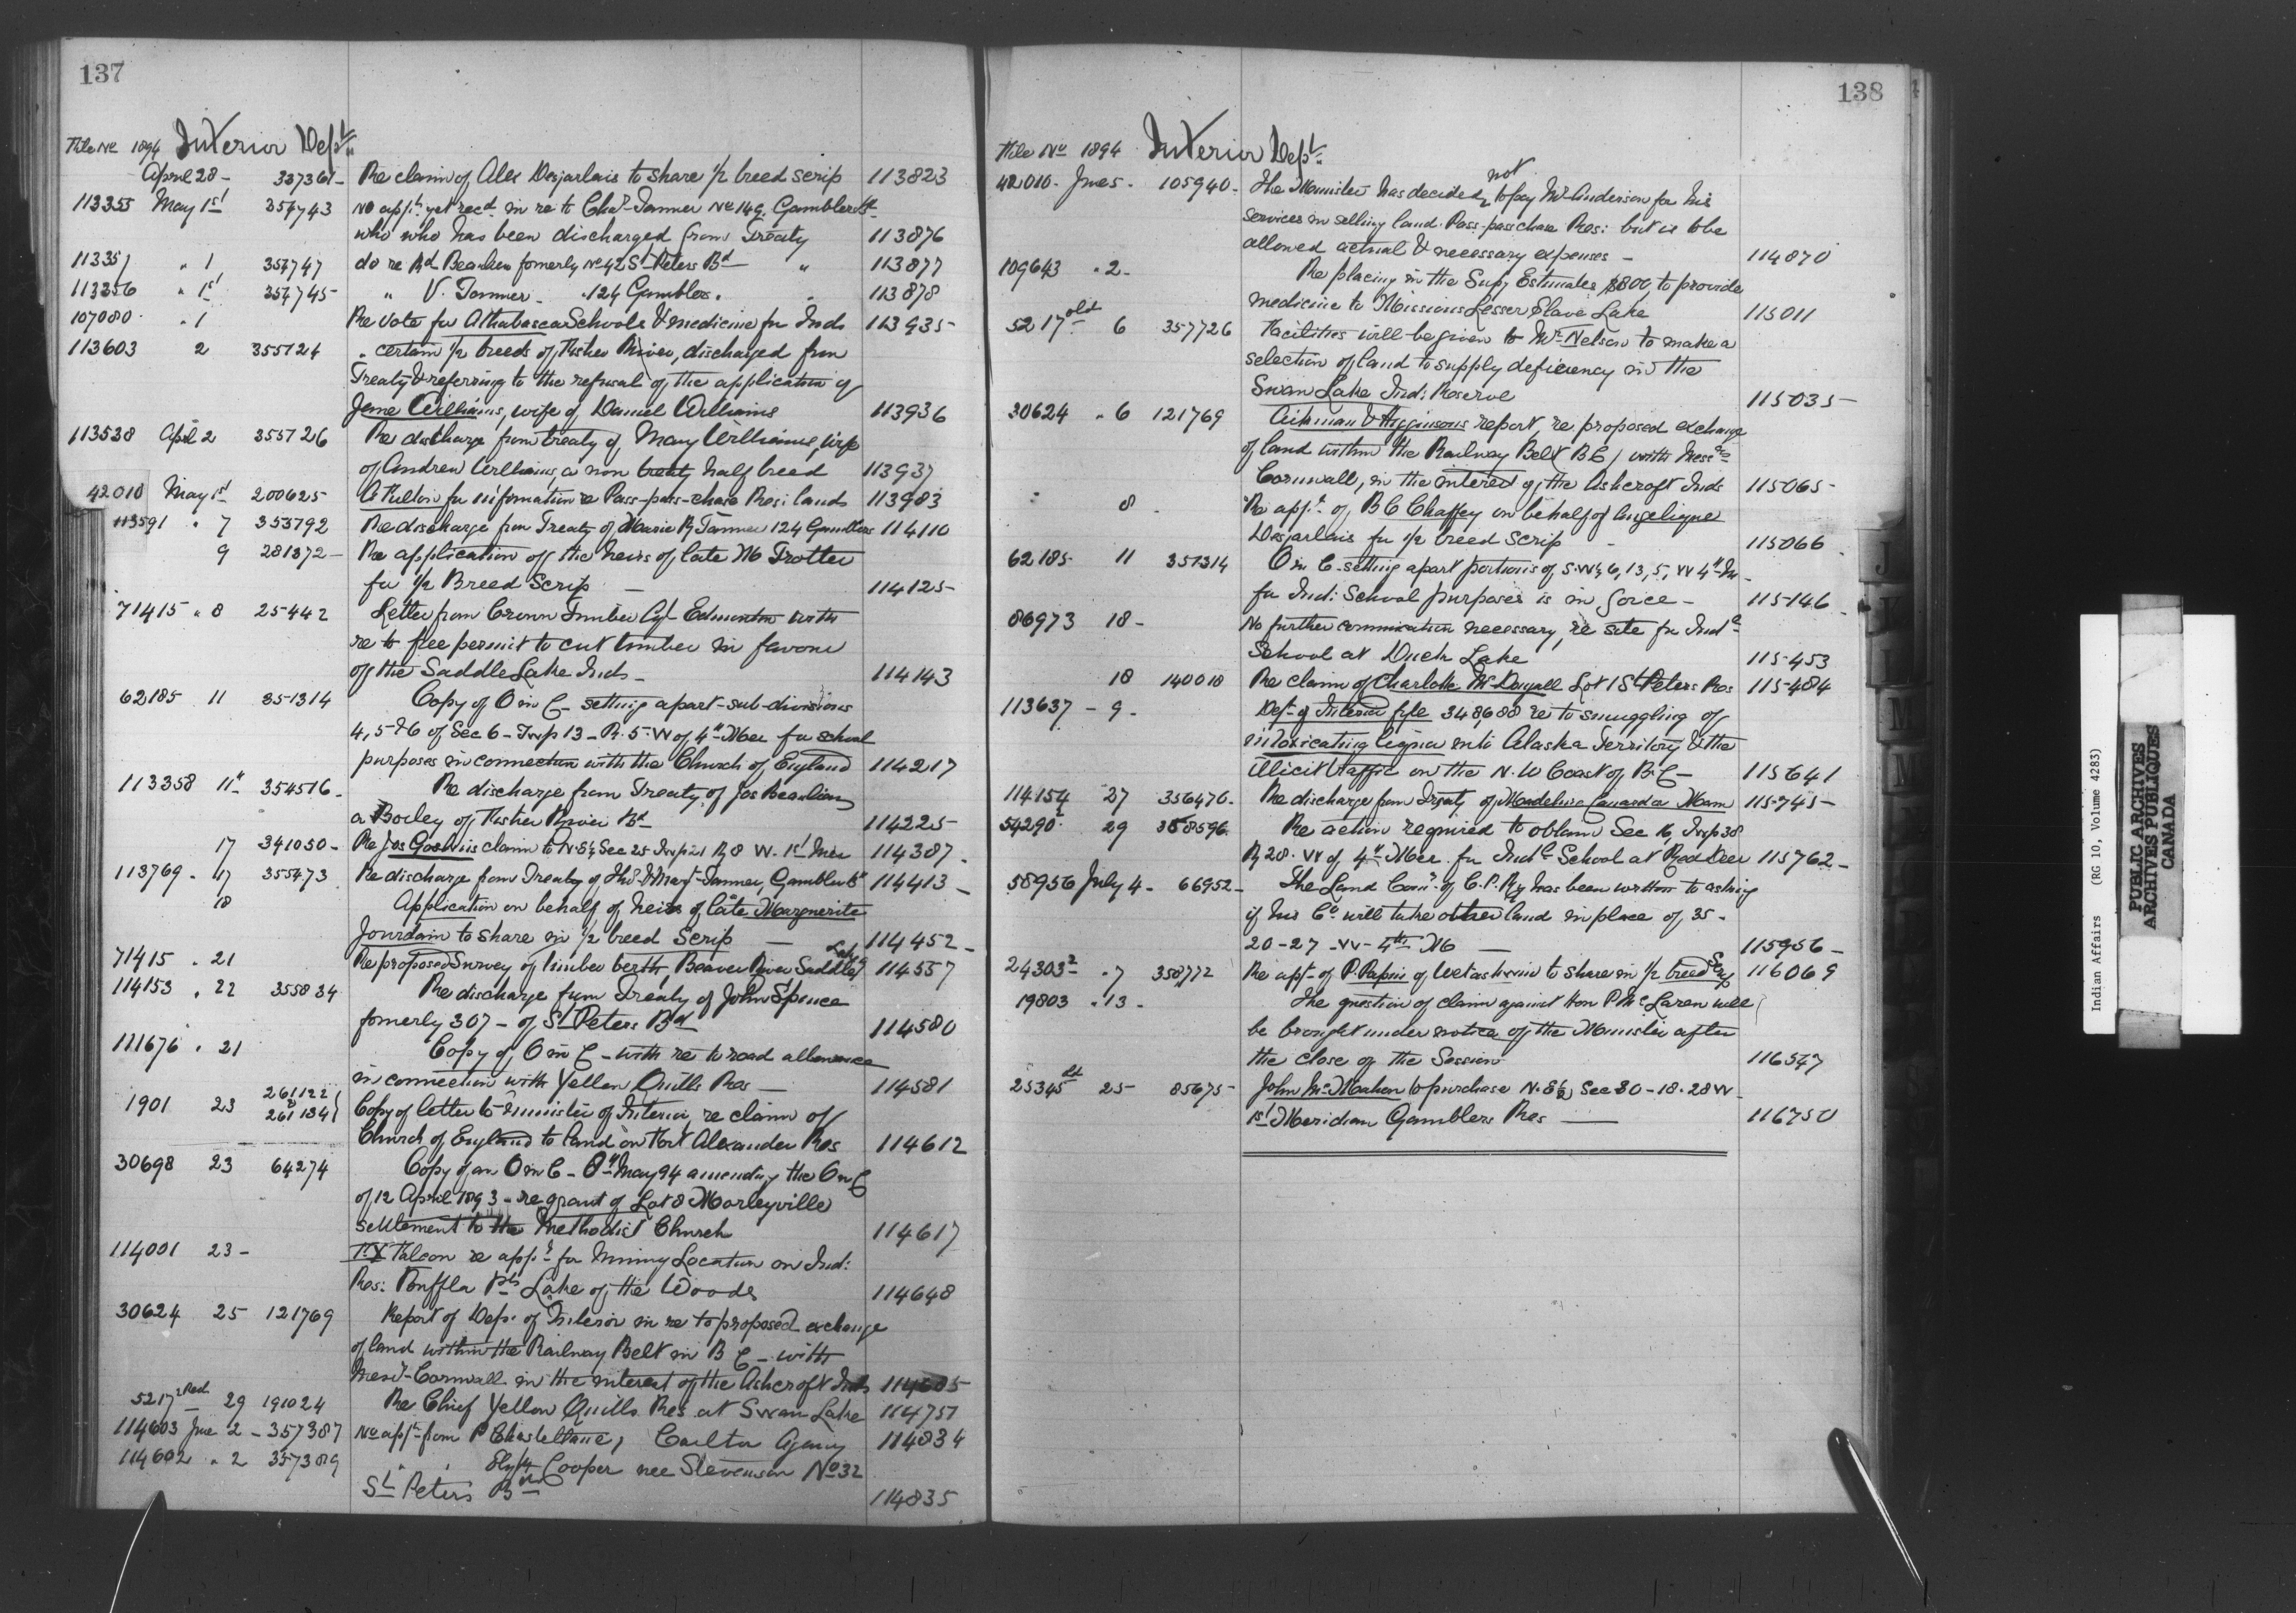 137
File No 1894 Interior Dept.
April 28 - 337361 - Re claim of Alex Desjarlais to share 1/2 breed scrip 113823
113355 May 1st 354743 No appn yet recd in re to Chas Tanner No 149 Gamblers Bd
who who has been discharged from Treaty 113876
113357 " 1 354747 do re Rd Beaulieu fomerly No 42 St Peters Bd " 113877
113356 " 1st 354745 " V. Tanner - 124 Gamblers. " 113878
107080 " 1 Re Vote for Athabasca Schools & medicine for Inds 113935
113603 2 355724 " certain 1/2 breeds of Fisher River, discharged from
Treaty & referring to the refusal of the application of
Jane Williams, wife of Daniel Williams 113936
113538 April 2 355726 Re discharge from treaty of Mary Williams, wife
of Andrew Williams, a non treaty half breed 113937
42010 May 1st 200625 A Fulton for information re Pass-pass-chase Res: lands 113983
113591 " 7 353792 Re discharge from Treaty of Marie R Tanner 124 Gamblers 114110
9 281372 - Re application of the heirs of late M Trotter
for 1/2 Breed Scrip - 114125
71415 " 8 25442 Letter from Crown Timber Agt Edmonton with
re to free permit to cut timber in favour
of the Saddle Lake Inds - 114143
62185 11 351314 Copy of O in C - setting apart - sub-divisions
4, 5 & 6 of Sec 6 - Twp 13 - R. 5 - W of 4th Mer for school
purposes in connection with the Church of England 114217
113358 11th 354516 - Re discharge from Treaty of Jos Beaulieu
a Boiley of Fisher River Bd 114225
17 341050 - Re Jos Goslins claim to N.E 1/4 Sec 25 Twp 21 R 8 W. 1st Mer 114387 -
113769 - 17 355473 Re discharge from Treaty of Thos & Margt Tanner, Gamblers Bd 114413 -
18 Application on behalf of heirs of late Marguerite
Jourdain to share in 1/2 breed Scrip - 114452 -
71415 " 21 Re proposed Survey of timber berth, Beaver River Saddle Lake 114557
114153 " 22 355834 Re discharge from Treaty of John Spence
fomerly 307 - of St Peters Bd 114580
111676 " 21 Copy of O in C - with re to road allowance
in connection with Yellow Quills Res - 114581
1901 23 261122 & 261134 Copy of letter to Minister of Interior, re claim of
Church of England to land on Fort Alexander Res 114612
30698 23 64274 Copy of an O in C - 8th May 94 amending the O in C
of 12 April 1893 - re grant of Lot 8 Morleyville
settlement to the Methodist Church 114617
114001 23 - Falcon re appn for Mining Location on Ind:
Res: Lake of the Woods 114648
30624 25 121769 Report of Dept of Interior in re to proposed exchange
of land within the Railway Belt in B C - with
Messrs Cornwall in the interest of the Ashcroft Inds 114685
5217 2 Red 29 191024 Re Chief Yellow Quills Res at Swan Lake 114751
114603 June 2 - 357387 No appn from P Chastellaine, Carlton Agency 114834
114602 " 2 357389 " " Cooper nee Stevenson No 32
St Peters Bd 114835
138
File No 1894 Interior Dept.
42010 - June 5 - 105940 - The Minister has decided not to pay Mr Anderson for his
services in selling land - Pass-passchase Res: but is to be
allowed actual & necessary expenses - 114870
109643 " 2 - Re placing in the Supy Estimates $800, to provide
medicine to Missions Lesser Slave Lake 115011
5217 old 6 357726 Facilities will be given to Mr Nelson to make a
selection of land to supply deficiency in the
Swan Lake Ind: Reserve 115035
30624 " 6 121769 Aikman & Higginsons report, re proposed exchange
of land within the Railway Belt B C, with Messrs
Cornwall, in the interest of the Ashcroft Inds 115065
" 8 - Re appn of B C Chaffey on behalf of Angelique
Desjarlais for 1/2 breed Scrip - 115066
62185 11 351314 O in C - setting apart portions of S.W 1/4 6, 13, 5, W 4th M -
for Ind: School purposes is in force - 115146
86973 18 - No further communication necessary, re site for Indl
School at Duck Lake 115453
18 140018 Re claim of Charlotte McDougall Lot 1 St Peters Res 115484
113637 - 9 - Dept of Interior fyle 348,688 re to smuggling of
intoxicating liquor into Alaska Territory & the
illicit traffic on the N. W Coast of B.C - 115641
114154 27 356476 - Re discharge from Treaty of Madeline Canada Mann 115745 -
54290 2 29 358596 Re action required to obtain Sec 16, Twp 38
R 28 - W of 4th Mer for Indl School at Red Deer 115762 -
58956 July 4 - 66952 - The Land Comr of C. P. Ry has been written to asking
if his Co will take other land in place of 35 -
20 - 27 - W - 4th M - 115956 -
24303 2 " 7 358,772 Re appn of P. Papin of Wetaskiwin to share in 1/2 breed Scrip 116069
19803 " 13 - The question of claim against Hon P McLaren will
be brought under notice of the Minister after
the close of the Session 116547
25345 25 - 85675 - John McMahon to purchase N. E 1/4 Sec 30 - 18 - 28 W -
1st Meridian Gamblers Res - 116750
J
J
L
M
Indian Affairs (RG 10, Volume 4283)
PUBLIC ARCHIVES
ARCHIVES PUBLIQUES
CANADA